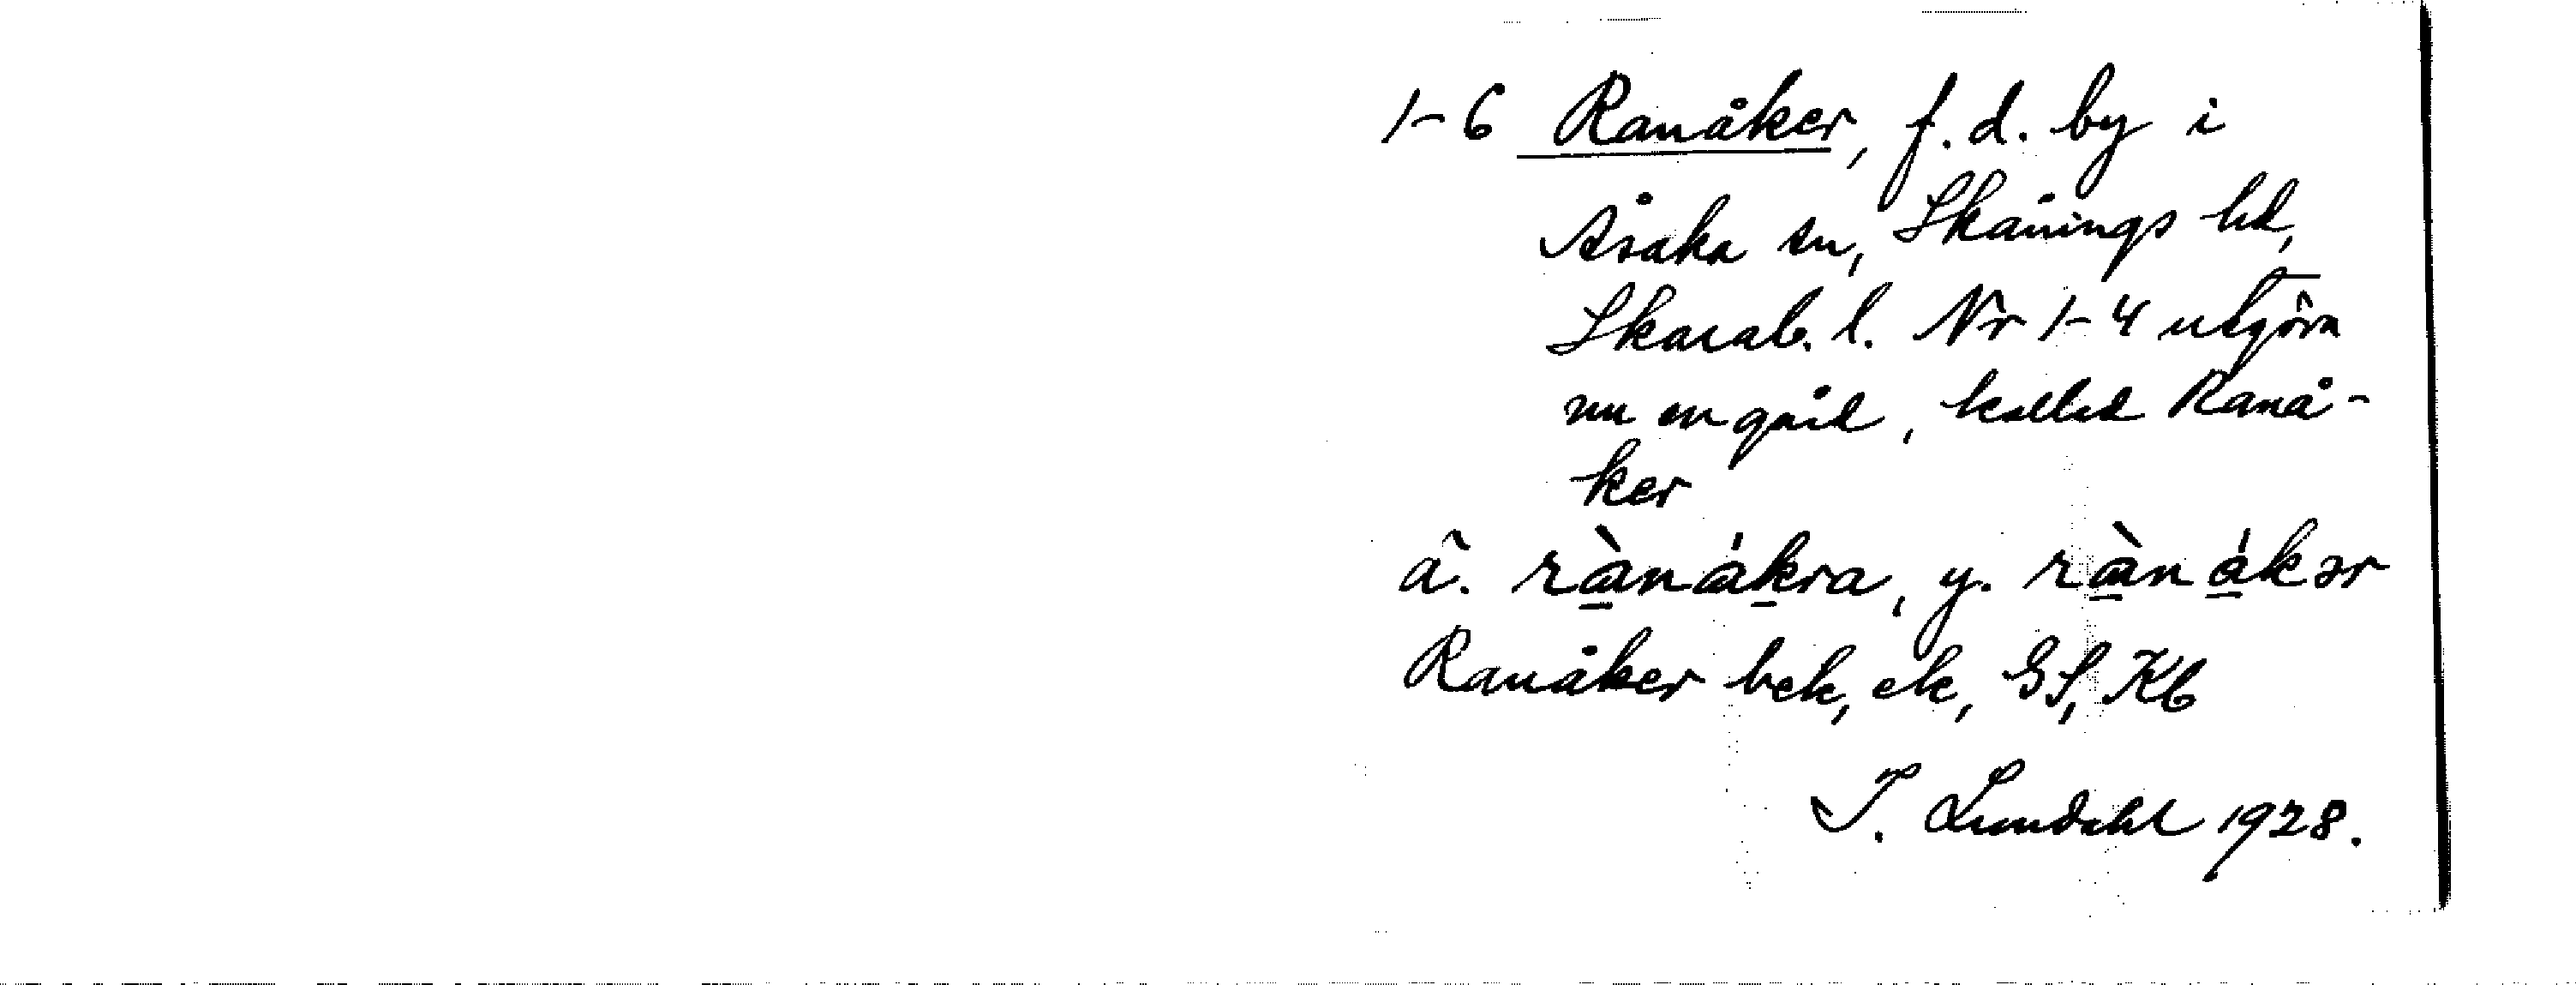 1-6 Ranåker, f.d. by i
Åsaka sn, Skånings hd,
Skarab. l. Nr 1-4 utgöra
nu en gård, kallad Ranå-
ker
ä. rànákra, y. rànákər
Ranåker bek, ek, GS, Kb
I. Lundahl 1928.